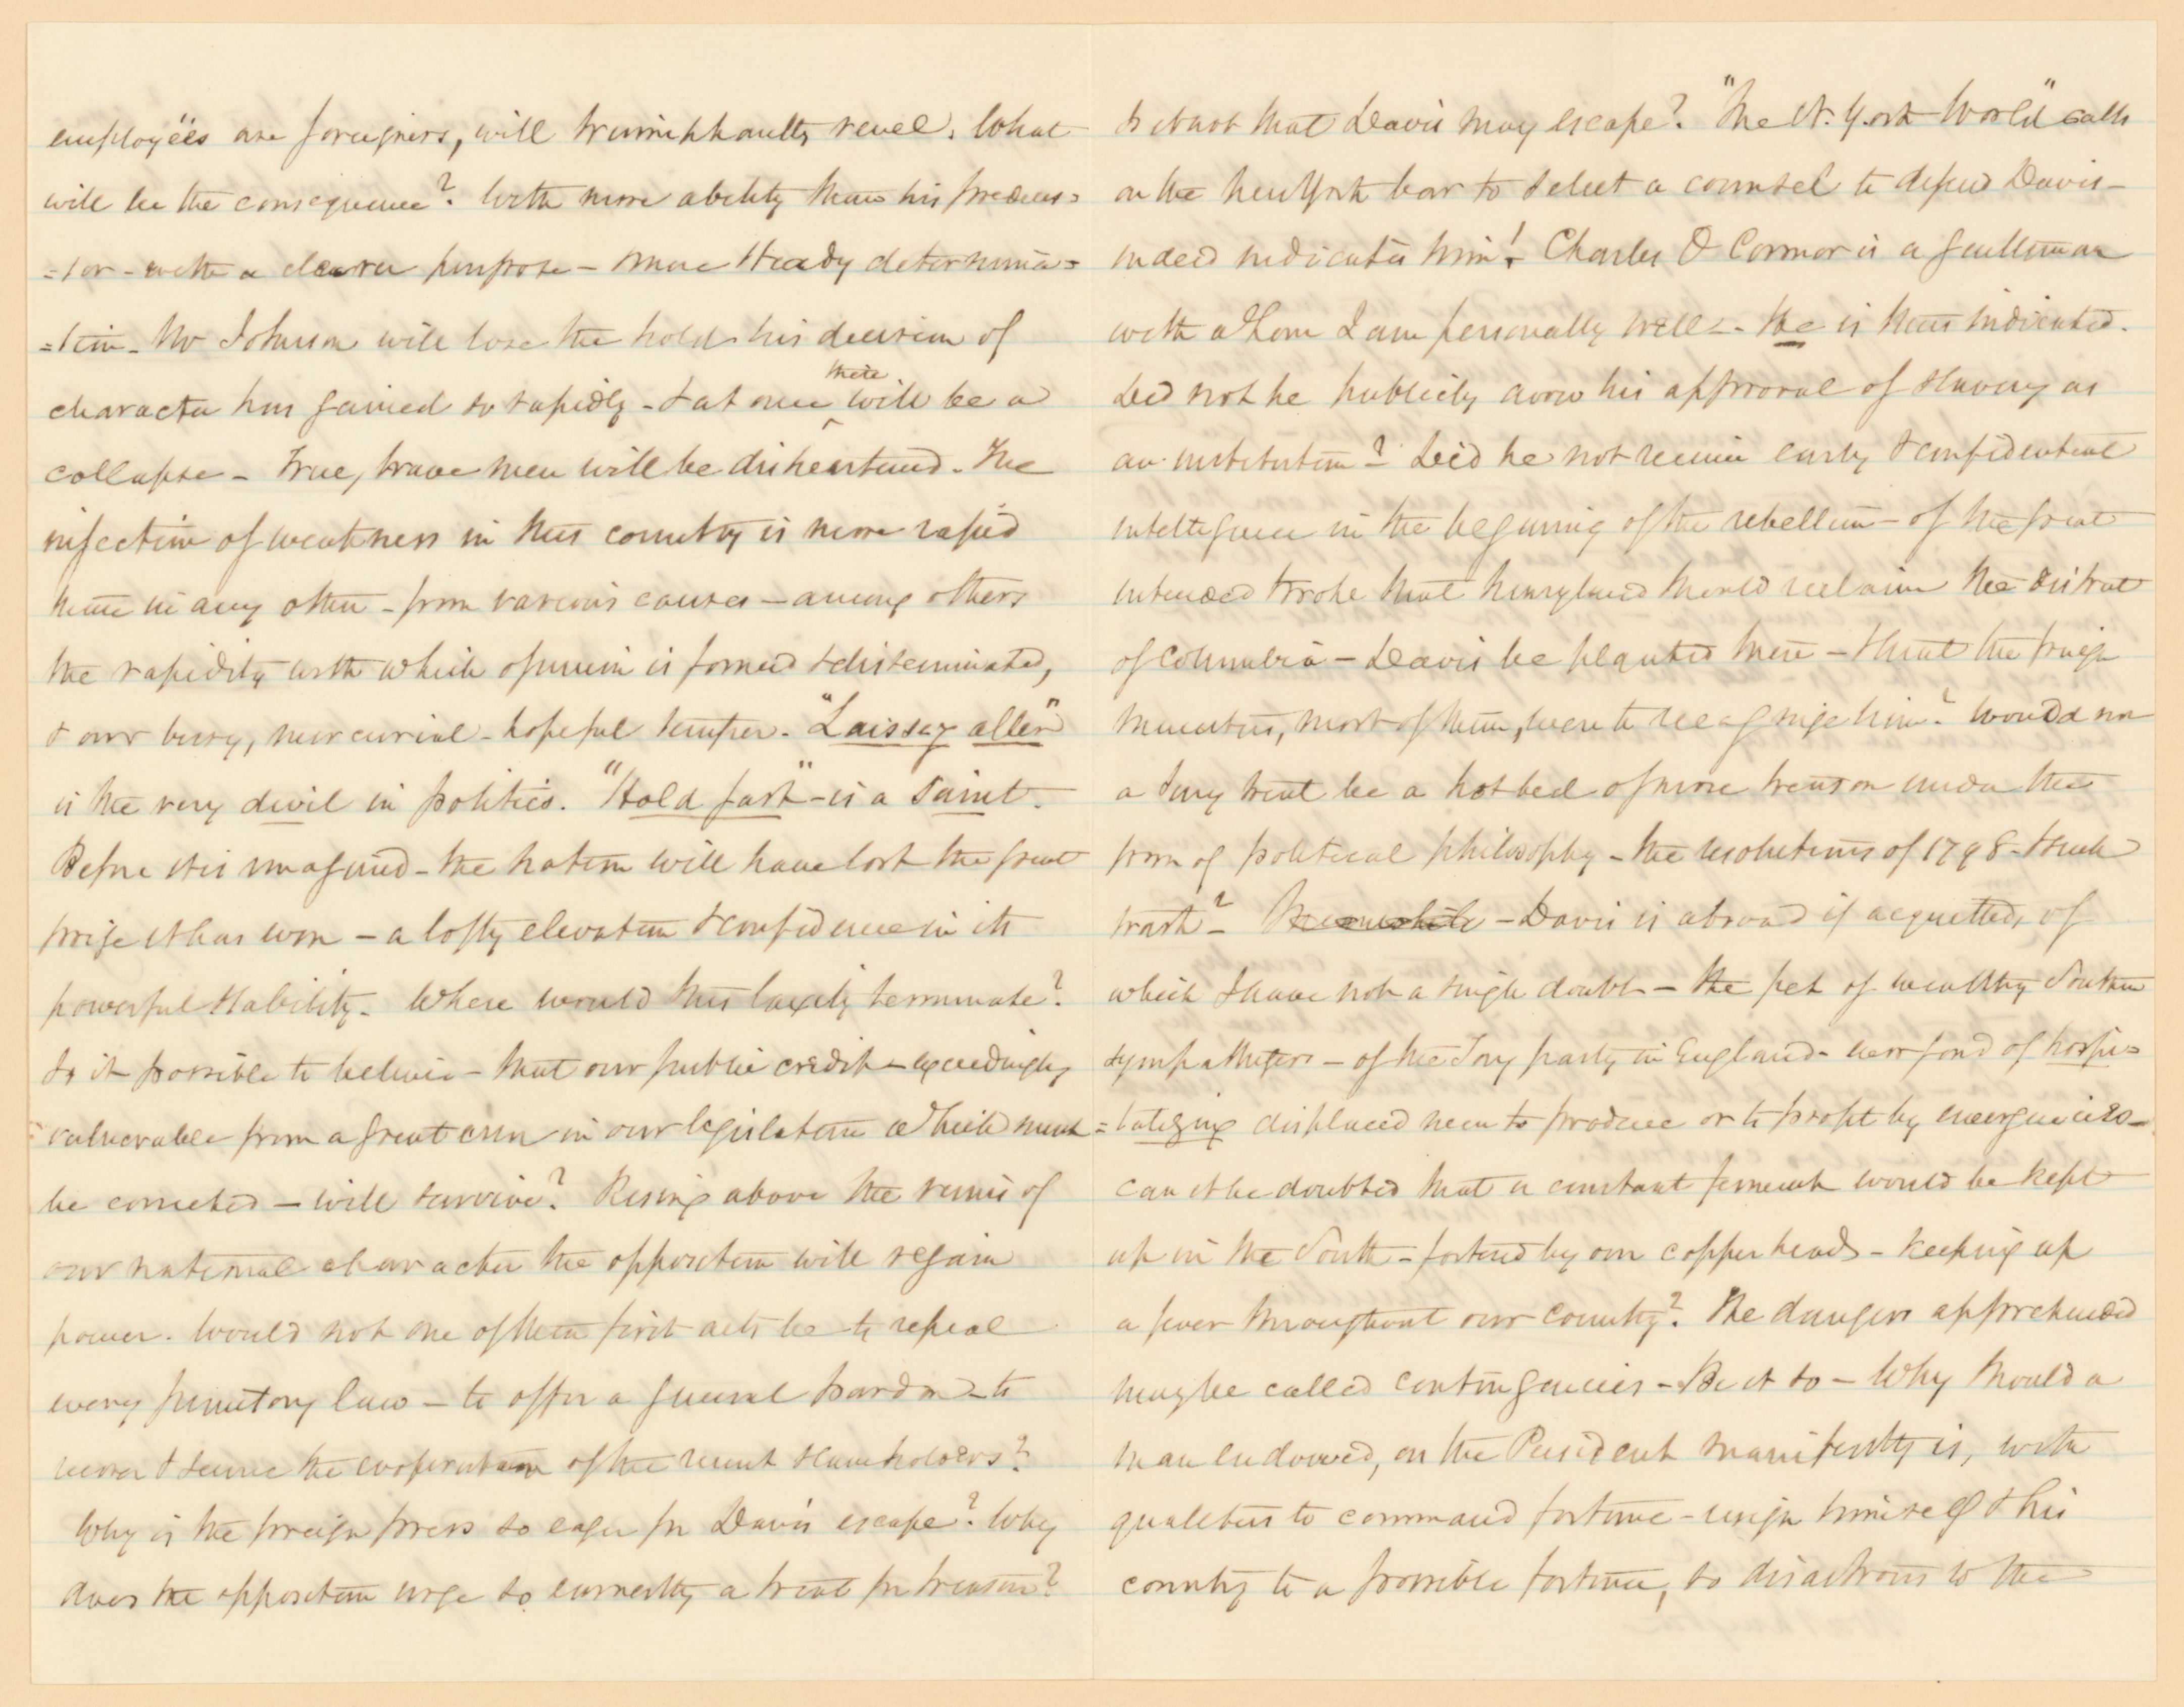 employëes are foreigners, will triumphantly revel. What
will be the consequence? With more ability than his predeces=
=sor - with a clearer purpose - more steady determina=
=tion - Mr Johnson will lose the hold his decision of
character has gained so rapidly - & at once there will be a
collapse - True, brave men will be disheartened. The
infection of weakness in this country is more rapid
than in any other - from various causes - among others
the rapidity with which opinion is formed & disseminated,
& our busy, mercurial - hopeful temper. "Laissez aller"
is the very devil in politics. "Hold fast" - is a saint.
Before it is imagined - the nation will have lost the great
prize it has won - a lofty elevation & confidence in its
powerful stability. Where would this laxity terminate?
Is it possible to believe - that our public credit - exceedingly
vulnerable from a great error in our legislation which must
be corrected - will survive? Rising above the ruins of
our national character the opposition will regain
power. Would not one of their first acts be to repeal
every punitory law - to offer a general pardon - to
& secure the cooperation of the recent slaveholders?
Why is the foreign press so eager for Davis' escape? Why
does the opposition urge so earnestly a trial for treason?
Is it not that Davis may escape? "The N. York World" calls
on the New York bar to select a counsel to defend Davis -
indeed indicates him! Charles O Connor is a gentleman
with whom I am personally well - He is thus indicated.
Did not he publicly avow his approval of slavery as
an institution? Did he not receive early & confidential
intelligence in the beginning of the rebellion - of the great
intended stroke that Maryland should reclaim the District
of Columbia - Davis be planted there - & that the foreign
ministers, most of them, were to recognize him? Would not
a long trial be a hot bed of more treason under the
form of political philosophy - the resolutions of 1798 - & such
trash? Meanwhile - Davis is abroad if acquitted, of
which I have not a single doubt - the pet of wealthy Southern
sympathizers - of the Tory party in England - ever fond of hospi=
=talizing displaced men to produce or to profit by emergencies -
can it be doubted that a constant ferment would be kept
up in the South - fostered by our copperheads - keeping up
a fever throughout our country? The dangers apprehended
may be called contingencies - Be it so - Why should a
man endowed, as the President manifestly is, with
qualities to command fortune - resign himself & his
country to a possible fortune, so disastrous to the